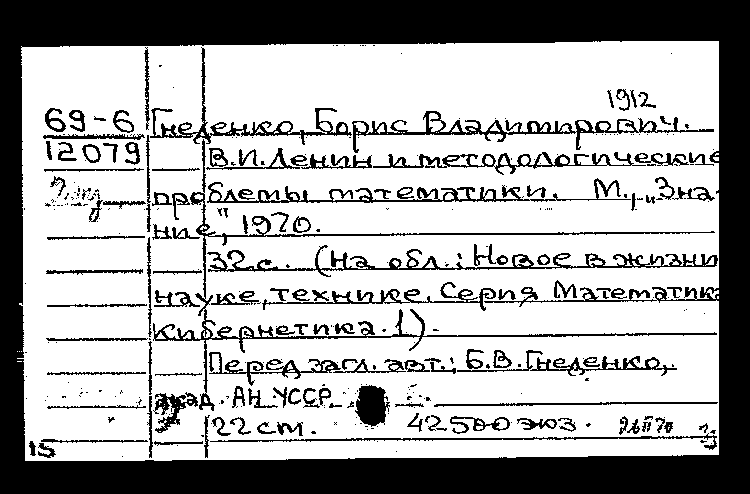 1912
69-6 Гнеденко, Борис Владимирович.
12079 В.И. Ленин и методологические
проблемы математики. М., „Зна-
ние", 1970.
32 с. (На обл.: Новое в жизни
науке, технике. Серия Математика
кибернетика. 1).
Перед загл. авт.: Б.В. Гнеденко,
акад. АН УССР
22 см. 42500 экз.
15